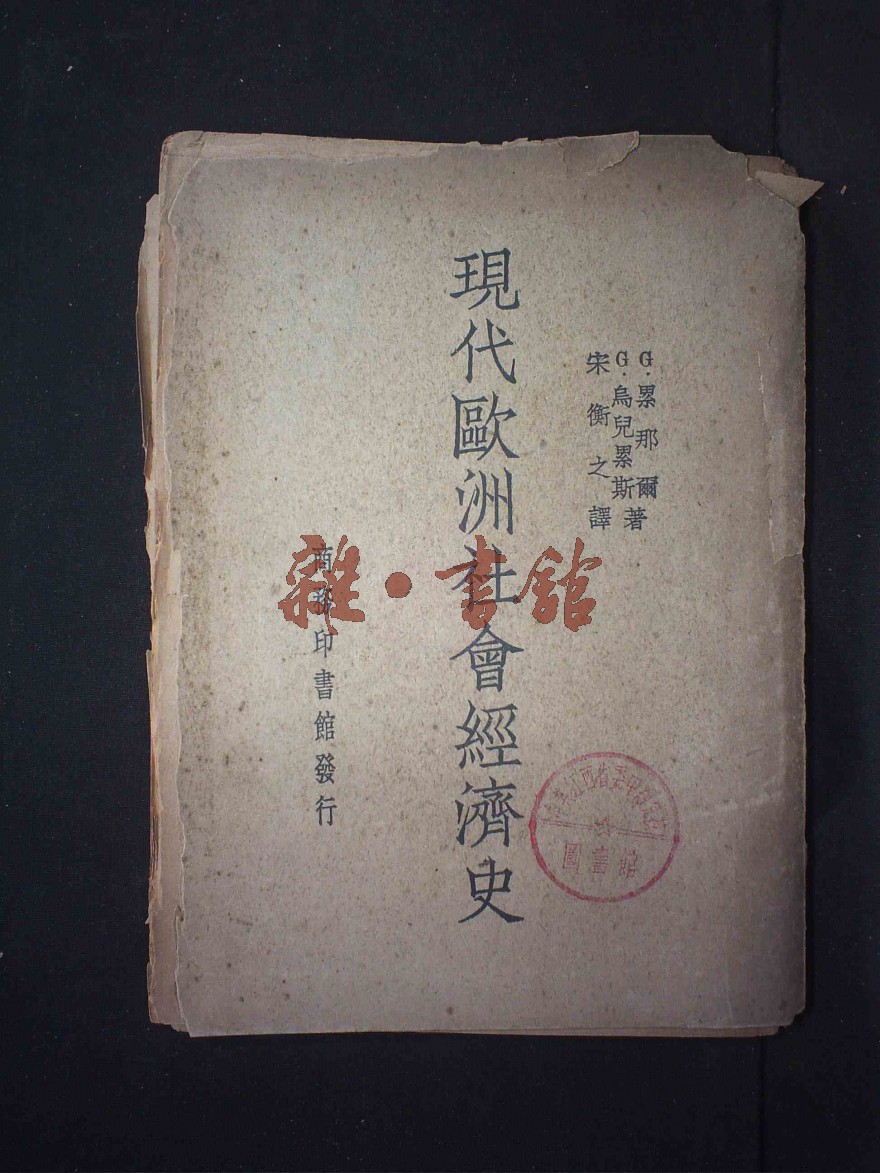 G.累那爾
G.烏兒累斯著
宋衡之譯
現代歐洲社會經濟史
商務印書館發行
雜·書館
圖書館